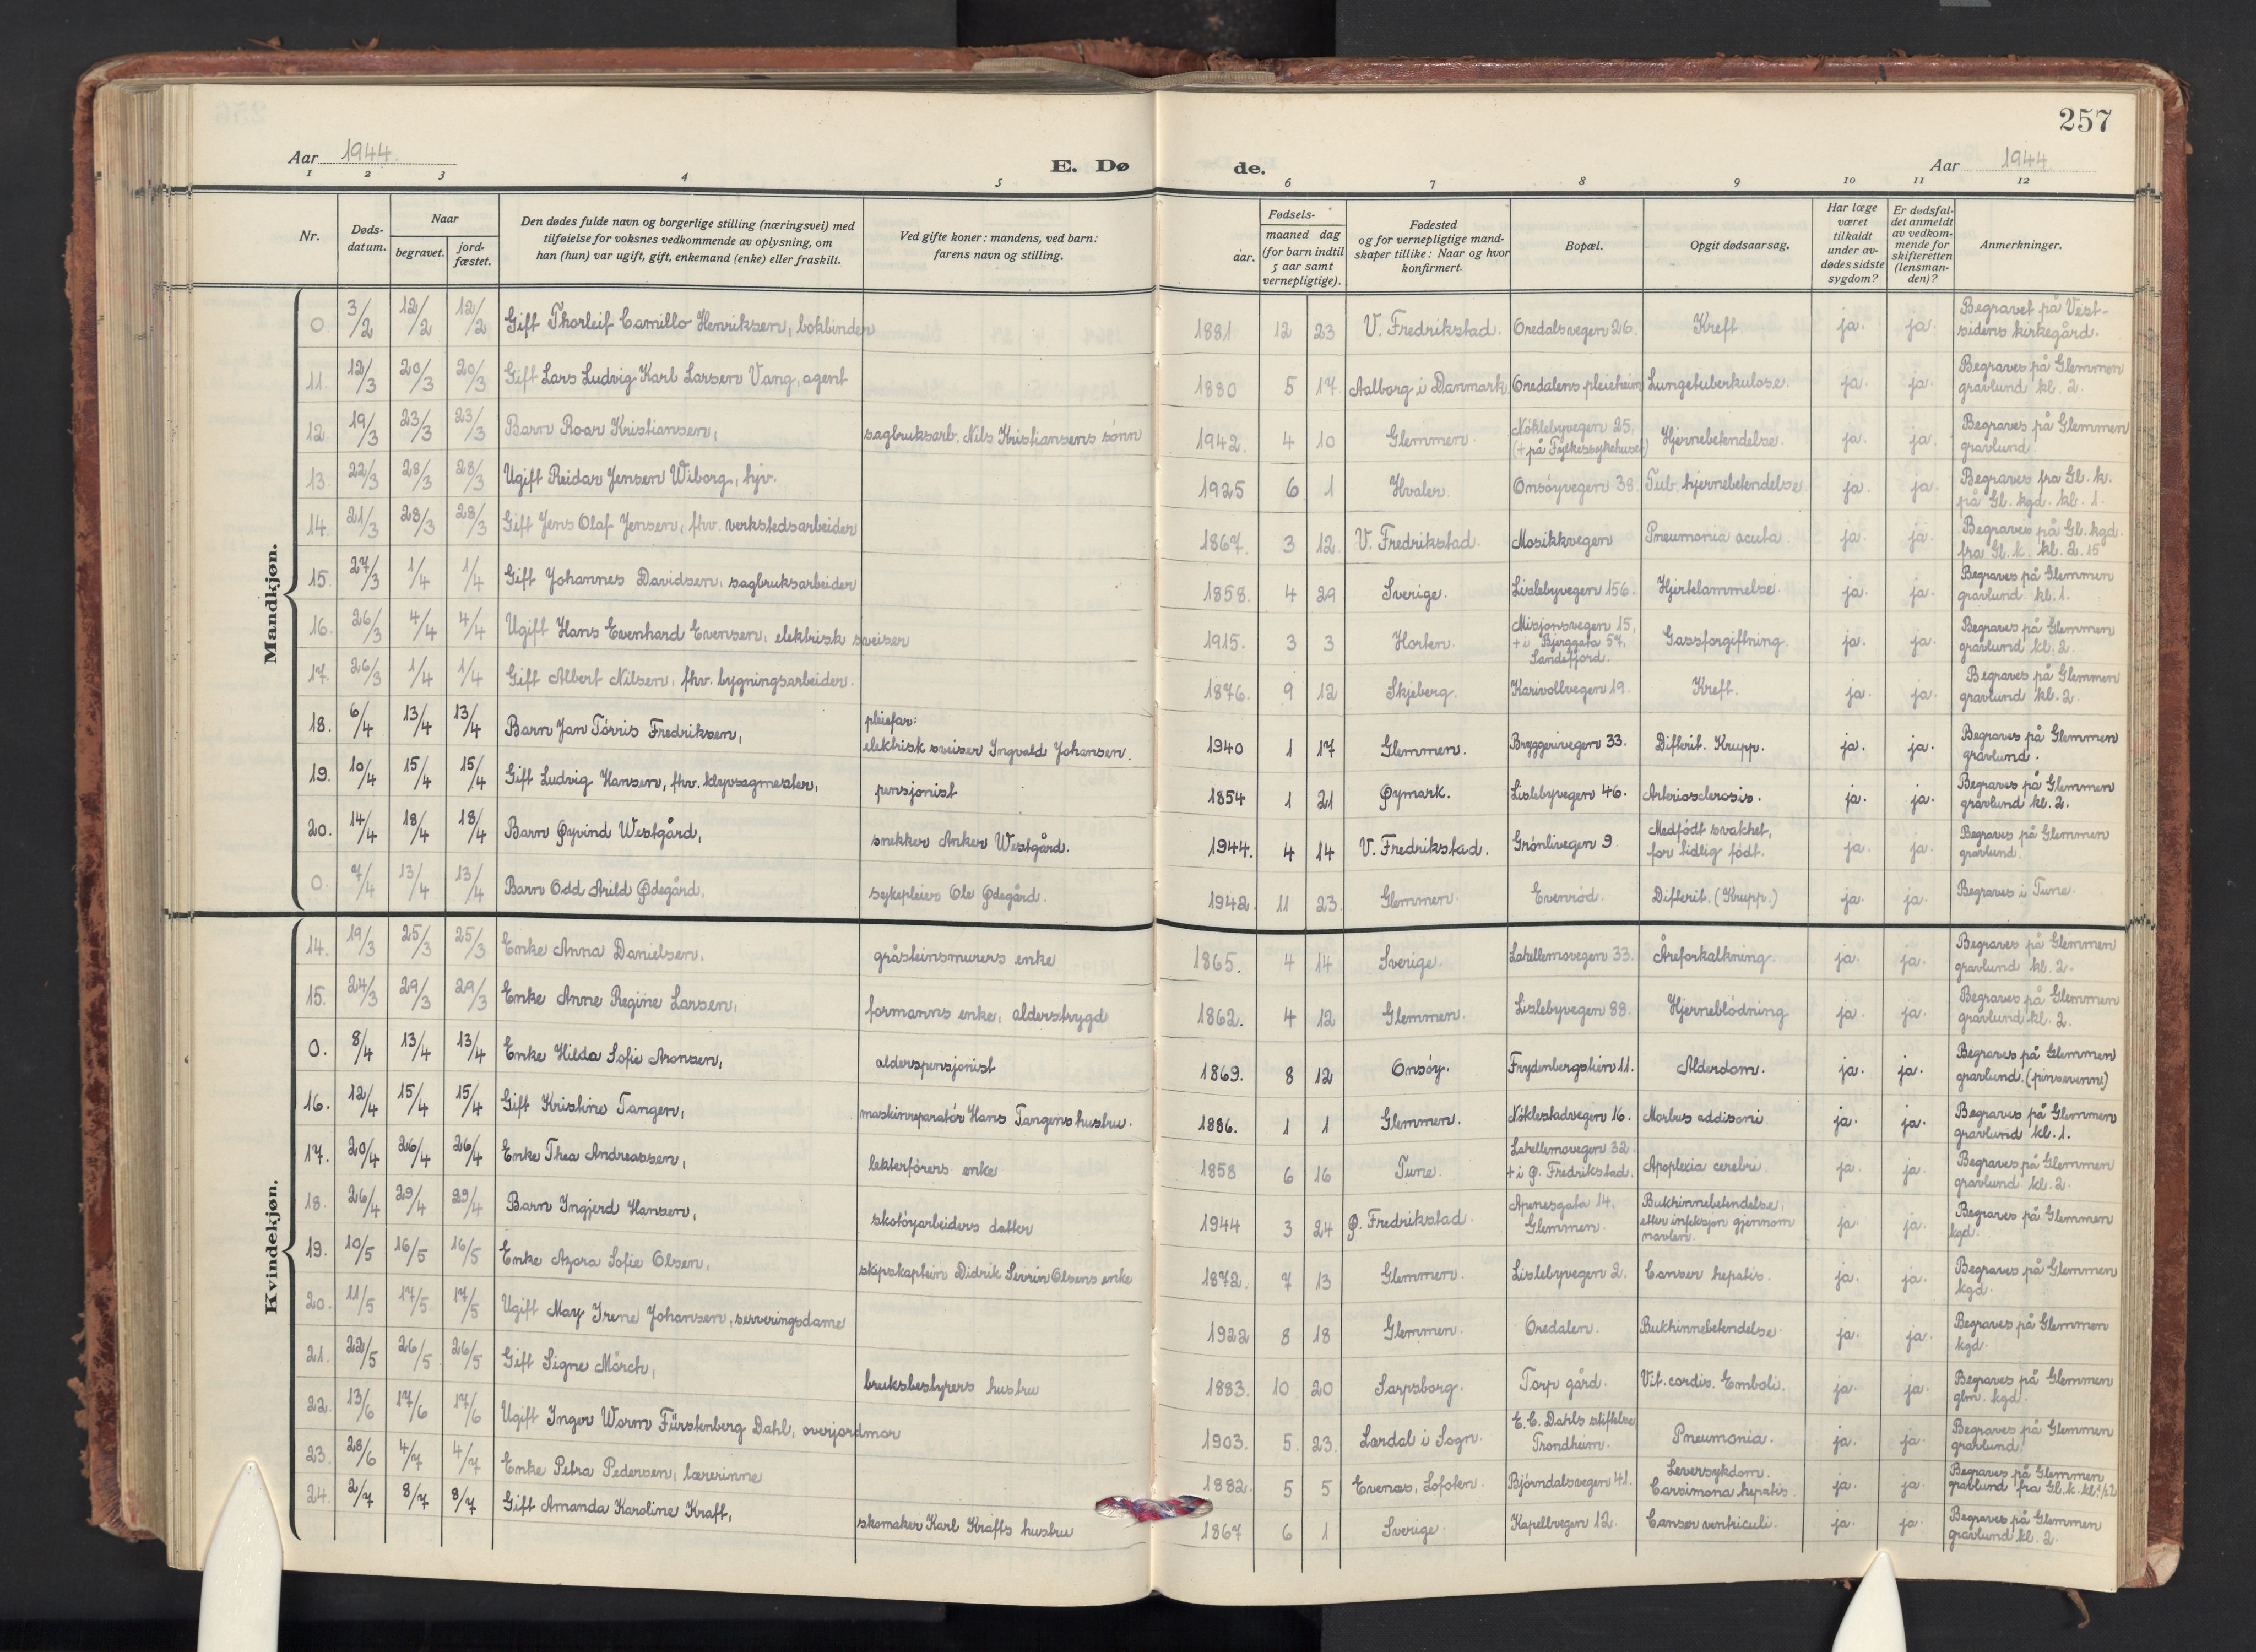 257
Aar 1944.
E. Dø
de.
Aar 1944
1 2 3 4 5 6 7 8 9 10 11 12
Nr.
Døds-
datum.
Naar
begravet.
jord-
fæstet.
Den dødes fulde navn og borgerlige stilling (næringsvei) med
tilføielse for voksnes vedkommende av oplysning, om
han (hun) var ugift, gift, enkemand (enke) eller fraskilt.
Ved gifte koner: mandens, ved barn:
farens navn og stilling.
Fødsels-
aar.
maaned dag
(for barn indtil
5 aar samt
vernepligtige).
Fødested
og for vernepligtige mand-
skaper tillike: Naar og hvor
konfirmert.
Bopæl.
Opgit dødsaarsag.
Har læge
været
tilkaldt
under av-
dødes sidste
sygdom?
Er dødsfal-
det anmeldt
av vedkom-
mende for
skifteretten
(lensman-
den)?
Anmerkninger.
Mandkjøn.
0 3/2 12/2 12/2 Gift Thorleif Camillo Henriksen, bokbinder 1881 12 23 V. Fredrikstad. Oredalsvegen 26. Kreft. ja. ja. Begravet på Vest-
sidens kirkegård.
11. 12/3 20/3 20/3 Gift Lars Ludvig Karl Larsen Vang, agent 1880 5 17. Aalborg i Danmark Oredalens pleieheim Lungetuberkulose. ja. ja. Begraves på Glemmen
gravlund kl. 2.
12. 19/3 23/3 23/3 Barn Roar Kristiansen, sagbruksarb. Nils Kristiansens sønn 1942. 4 10 Glemmen. Nöklebyvegen 25,
(+ på Fylkessykehuset) Hjernebetendelse. ja. ja. Begraves på Glemmen
gravlund.
13. 22/3 28/3 28/3 Ugift Reidar Jensen Wiborg, hjv. 1925 6 1 Hvaler. Onsöyvegen 38. Tub. hjernebetendelse. ja. ja. Begraves fra Gl. k.
på Gl. kgd. kl. 1.
14. 21/3 28/3 28/3 Gift Jens Olaf Jensen, fhv. verkstedsarbeider 1867. 3 12. V. Fredrikstad. Mosikkvegen Pneumonia acuta. ja. ja. Begraves på Gl. kgd.
fra Gl. k. kl. 2.15
15. 27/3 1/4 1/4 Gift Johannes Davidsen, sagbruksarbeider 1858. 4 29 Sverige. Lislebyvegen 156. Hjertelammelse. ja. ja. Begraves på Glemmen
gravlund kl. 1.
16. 26/3 4/4 4/4 Ugift Hans Evenhard Evensen, elektrisk sveiser 1915. 3 3 Horten. Misjonsvegen 15,
+ i Bjerggata 57,
Sandefjord. Gassforgiftning. ja. ja. Begraves på Glemmen
gravlund kl. 2.
17. 26/3 1/4 1/4 Gift Albert Nilsen, fhv. bygningsarbeider. 1876. 9 12 Skjeberg. Karivollvegen 19. Kreft. ja. ja. Begraves på Glemmen
gravlund kl. 2.
18. 6/4 13/4 13/4 Barn Jan Törris Fredriksen, pleiefar:
elektrisk sveiser Ingvald Johansen. 1940 1 17 Glemmen. Bryggerivegen 33. Difterit. Krupp. ja. ja. Begraves på Glemmen
gravlund.
19. 10/4 15/4 15/4 Gift Ludvig Hansen, fhv. klyvsagmester, pensjonist 1854 1 21 Øymark. Lislebyvegen 46. Arteriosclerosis. ja. ja. Begraves på Glemmen
gravlund kl. 2.
20. 14/4 18/4 18/4 Barn Øyvind Westgård, snekker Anker Westgård. 1944. 4 14 V. Fredrikstad. Grønlivegen 9. Medfödt svakhet,
for tidlig födt. ja. ja. Begraves på Glemmen
gravlund.
0. 7/4 13/4 13/4 Barn Odd Arild Ødegård. sykepleier Ole Ødegård. 1942. 11 23. Glemmen. Evenröd. Difterit. (Krupp.) ja. ja. Begraves i Tune.
Kvindekjøn.
14. 19/3 25/3 25/3 Enke Anna Danielsen, gråsteinsmurers enke 1865. 4 14 Sverige. Latellemovegen 33. Åreforkalkning. ja. ja. Begraves på Glemmen
gravlund kl. 2.
15. 24/3 29/3 29/3 Enke Anne Regine Larsen, formanns enke, alderstrygd 1862. 4 12 Glemmen. Lislebyvegen 88. Hjerneblödning ja. ja. Begraves på Glemmen
gravlund kl. 2.
0. 8/4 13/4 13/4 Enke Hilda Sofie Aronsen, alderspensjonist 1869. 8 12 Onsöy. Frydenbergskin 11. Alderdom. ja. ja. Begraves på Glemmen
gravlund. (pinsevenn)
16. 12/4 15/4 15/4 Gift Kristine Tangen, maskinreparatör Hans Tangens hustru. 1886. 1 1 Glemmen. Nöklestadvegen 16. Morbus addisoni ja. ja. Begraves på Glemmen
gravlund kl. 1.
17. 20/4 26/4 26/4 Enke Thea Andreassen, lekterförers enke 1858 6 16 Tune. Latellemovegen 32.
+ i Ø. Fredrikstad. Apoplexia cerebri. ja. ja. Begraves på Glemmen
gravlund kl. 2.
18. 26/4 29/4 29/4 Barn Ingjerd Hansen, skotöyarbeiders datter 1944 3 24 Ø. Fredrikstad. Apenesgata 14,
Glemmen. Bukhinnebetendelse,
etter infeksjon gjennom
navlen. ja. ja. Begraves på Glemmen
kgd.
19. 10/5 16/5 16/5 Enke Azora Sofie Olsen, skipskaptein Didrik Sevrin Olsens enke 1872. 7 13 Glemmen. Lislebyvegen 2. Canser hepatis. ja. ja. Begraves på Glemmen
kgd.
20. 11/5 17/5 17/5 Ugift May Irene Johansen, serveringsdame 1922 8 18 Glemmen. Oredalen. Bukhinnebetendelse ja. ja. Begraves på Glemmen
kgd.
21. 22/5 26/5 26/5 Gift Signe Mörch, bruksbestyrers hustru 1883. 10 20 Sarpsborg. Torp gård. Vit. cordis. Emboli. ja. ja. Begraves på Glemmen
glm. kgd.
22. 13/6 17/6 17/6 Ugift Inger Worm Fürstenberg Dahl, overjordmor 1903. 5. 23. Lardal i Sogn. E. C. Dahls stiftelse
Trondheim. Pneumonia. ja. ja. Begraves på Glemmen
gravlund.
23. 28/6 4/7 4/7 Enke Petra Pedersen, lærerinne 1882. 5 5 Evenæs, Lofoten. Björndalsvegen 41. Leversykdom.
Carsimona hepatis. ja. ja. Begraves på Glemmen
gravlund fra Gl. k. kl. 1/2 2
24. 2/7 8/7 8/7 Gift Amanda Karoline Kraft, skomaker Karl Krafts hustru 1867 6 1 Sverige. Kapellvegen 12. Canser ventriculi. ja. ja. Begraves på Glemmen
gravlund kl. 2.